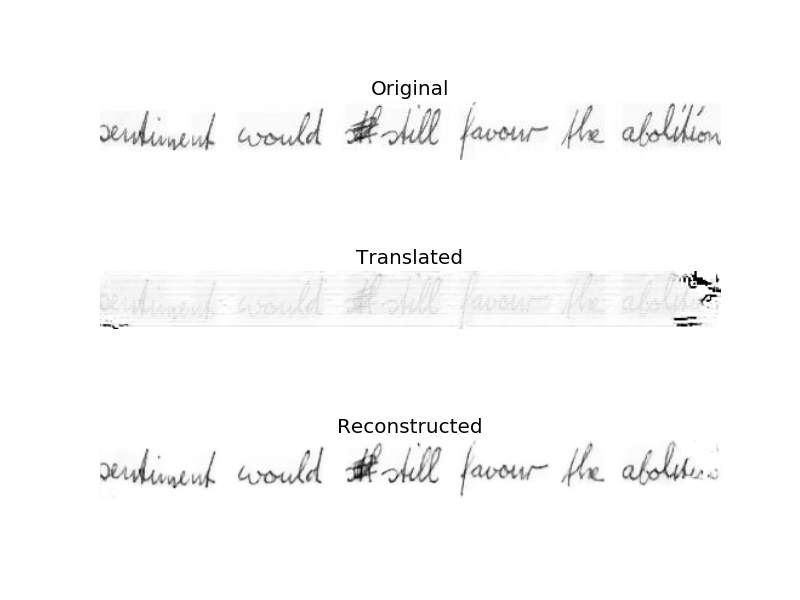 Original
sentiment would still favour the abolition
Translated
sentiment would still favour the
Reconstructed
sentiment would still favour the